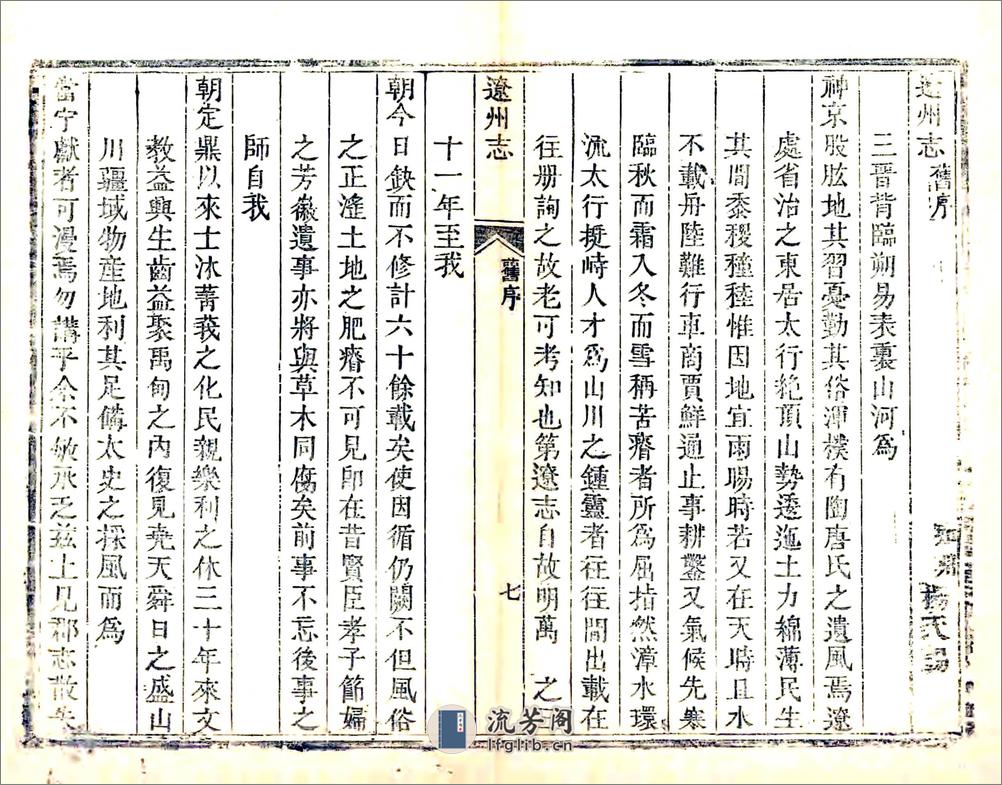 遼州志舊序
楊
三晉背臨朔易表裏山河爲
神京股肱地其習憂勤其俗渾樸有陶唐氏之遺風焉遼
處省治之東居太行絶頂山勢透迤土力綿薄民生
其間黍稷穜稑惟因地宜雨暘時若又在天時且水
不載舟陸難行車商賈鮮通止事耕鑿又氣候先寒
臨秋而霜入冬而雪稱苦瘠者所爲屈指然漳水環
流太行挺峙人才爲山川之鍾靈者往往間出載在
往册詢之故老可考知也第遼志自故明萬 之
遼州志
舊序
七
十一年至我
朝今日鈌而不修計六十餘載矣使因循仍闕不但風俗
之正滛土地之肥瘠不可見卽在昔賢臣孝子節婦
之芳徽遺事亦將與草木同腐矣前事不忘後事之
師自我
朝定鼎以來士沐菁莪之化民親樂利之休三十年來文
教益興生齒益聚禹甸之内復見堯天舜日之盛山
川疆域物産地利其足備太史之採風而爲
當宁獻者可漫焉勿講乎余不敏承乏兹土見郡志散失
流芳阁
lfglib.cn